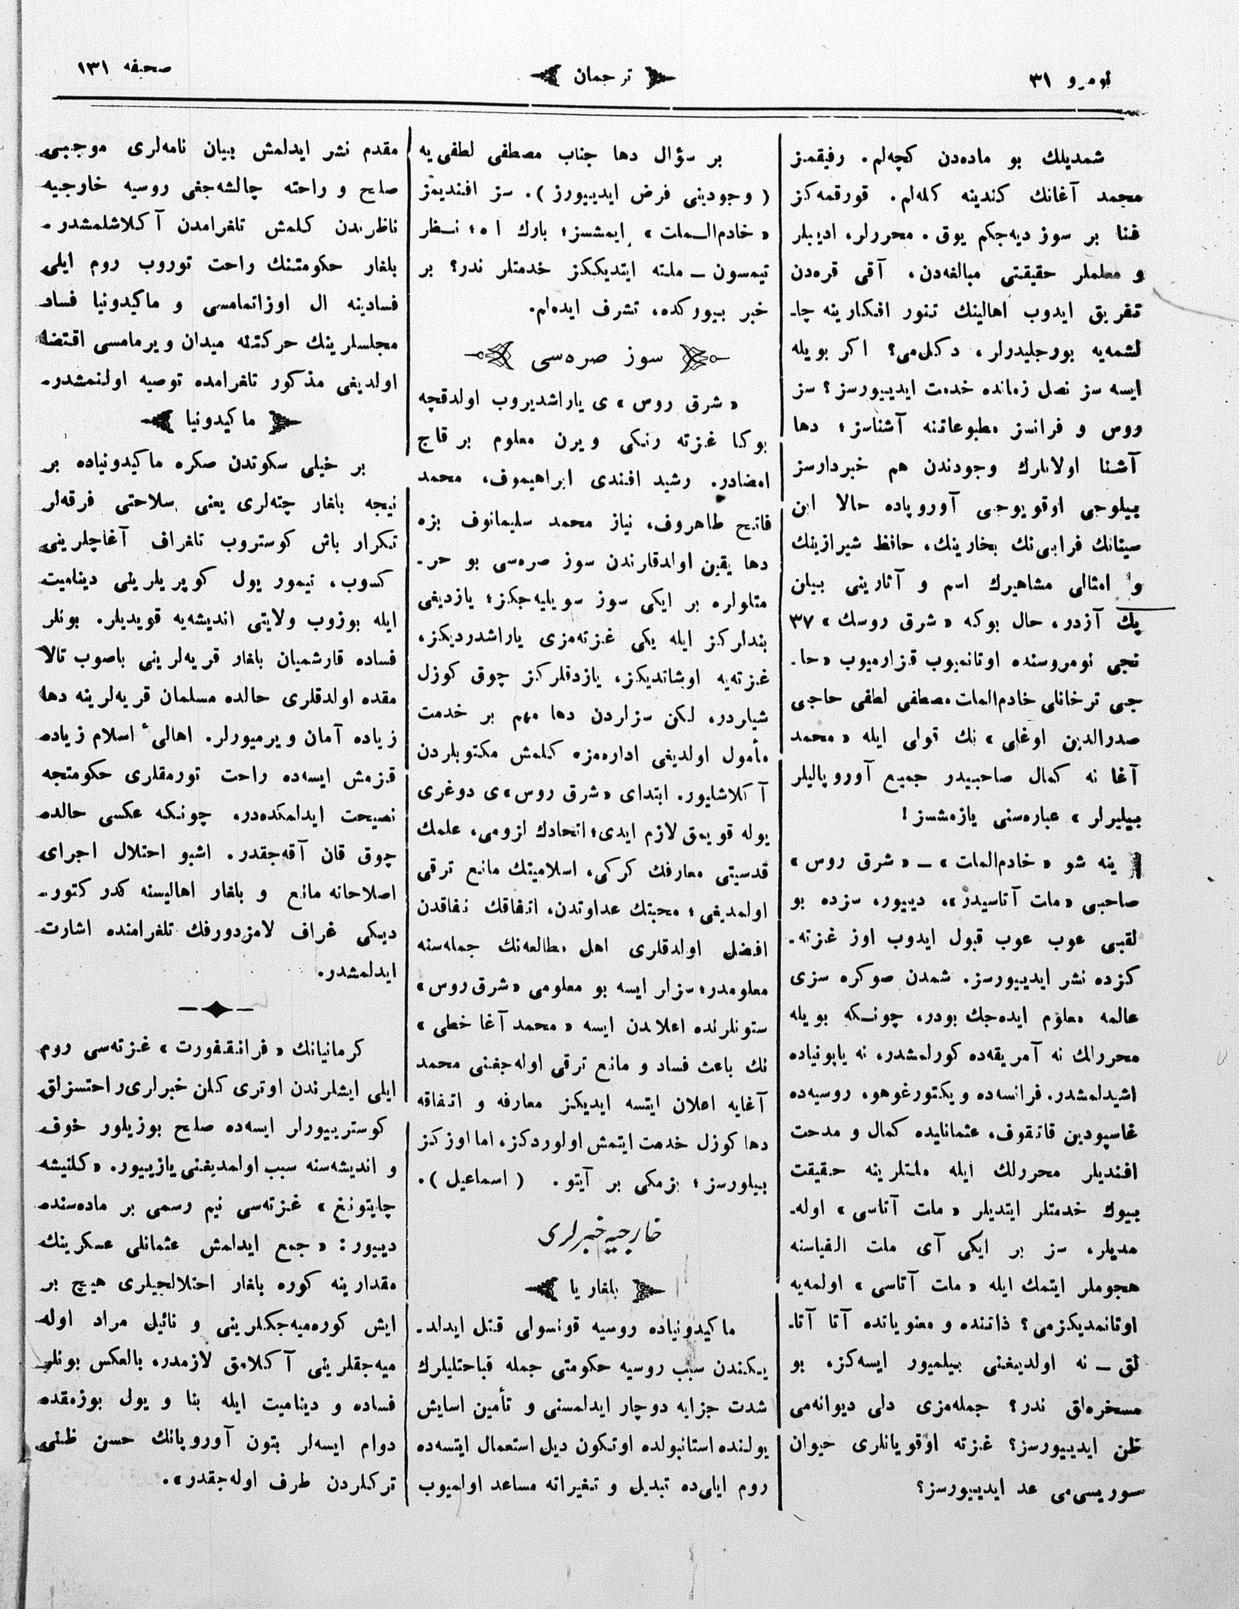 نومرو ۳۱
ترجمان
صحیفه ۱۳۱
شمدیلك بو ماده‌دن كچه‌لم. رفیقمز
محمد آغانك كندینه كله‌لم. قورقمه‌كز
فنا بر سوز دیه‌جكم یوق. محررلر، ادیبلر
و معلملر حقیقتی مبالغه‌دن، آقی قره‌دن
تفریق ایدوب اهالینك تنور افكارینه چا-
لشمه‌یه بورجلیدرلر، دكل‌می؟ اكر بویله
ایسه سز نصل زمانده خدمت ایدییورسز؟ سز
روس و فرانسز مطبوعاتنه آشناسز؛ دها
آشنا اولانلرك وجودندن هم خبردارسز
بیلوجی اوقویوجی آوروپاده حالا ابن
سینانك فرابی‌نك بخارینك، حافظ شیرازینك
و امثالی مشاهیرك اسم و آثارینی بیان
پك آزدر، حال بوكه «شرق روسك» ۳۷
نجی نومروسنده اوتانمیوب قزارمیوب «حا-
جی ترخانلی خادم‌الملت مصطفی لطفی حاجی
صدرالدین اوغلی» نك قولی ایله «محمد
آغا نه كمال صاحبیدر جمیع آوروپالیلر
بیلیرلر» عباره‌سنی یازمشسز!
ینه شو «خادم‌الملت» — «شرق روس»
صاحبی «ملت آتاسیدر»، دییور، سزده بو
لقبی عوب عوب قبول ایدوب اوز غزته-
كزده نشر ایدییورسز. شمدن صوكره سزی
عالمه معلوم ایده‌جك بودر، چونكه بویله
محررلك نه آمریقه‌ده كورلمشدر، نه یاپونیاده
اشیدلمشدر. فرانسه‌ده ویكتورغوهو، روسیه‌ده
غاسپودین قاتقوف، عثمانلیده كمال و مدحت
افندیلر محررلك ایله ملتلرینه حقیقت
بیوك خدمتلر ایتدیلر «ملت آتاسی» اوله-
مدیلر، سز بر ایكی آی ملت الفباسنه
هجوملر ایتمك ایله «ملت آتاسی» اولمه‌یه
اوتانمدیكزمی؟ ذاتنده و معنویاتده آتا آتا-
لق — نه اولدیغنی بیلمیور ایسه‌كز، بو
مسخره‌لق ندر؟ جمله‌مزی دلی دیوانه‌می
ظن ایدییورسز؟ غزته اوقویانلری حیوان
سوریسی‌می عد ایدییورسز؟
بر سؤال دها جناب مصطفی لطفی‌یه
(وجودینی فرض ایدییورز). سز افندیمز
«خادم‌الملت» ایمشسز؛ بارك اه؛ نظر
تیمسون — ملته ایتدیككز خدمتلر ندر؟ بر
خبر بیوركده، تشرف ایده‌لم.
سوز صره‌سی
«شرق روس» ی یاراشدیروب اولدقچه
بوكا غزته رنكی ویرن معلوم بر قاچ
امضادر. رشید افندی ابراهیموف، محمد
فاتح طاهروف، نیاز محمد سلیمانوف بزه
دها یقین اولدقلرندن سوز صره‌سی بو حر-
متلولره بر ایكی سوز سویلیه‌جكز؛ یازدیغی
بندلركز ایله یكی غزته‌مزی یاراشدردیكز،
غزته‌یه اوشاندیكز، یازدقلركز چوق كوزل
شیلردر، لكن سزلردن دها مهم بر خدمت
مأمول اولدیغی اداره‌مزه كلمش مكتوبلردن
آكلاشلیور. ابتدای «شرق روس»ی دوغری
یوله قویمق لازم ایدی؛ اتحادك لزومی، علمك
قدسیتی معارفك كركی، اسلامیتك مانع ترقی
اولمدیغی؛ محبتك عداوتدن، اتفاقك نفاقدن
افضل اولدقلری اهل مطالعه‌نك جمله‌سنه
معلومدر؛ سزلر ایسه بو معلومی «شرق روس»
ستونلرنده اعلاندن ایسه «محمد آغا خطی»
نك باعث فساد و مانع ترقی اوله‌جغنی محمد
آغایه اعلان ایتسه ایدیكز معارفه و اتفاقه
دها كوزل خدمت ایتمش اولوردكز، اما اوزكز
بیلورسز؛ بزمكی بر آیتو. (اسماعیل).
خارجیه خبرلری
بلغاریا
ماكیدونیاده روسیه قونسولی قتل ایدلد-
یكندن سبب روسیه حكومتی جمله قباحتلیلرك
شدت جزایه دوچار ایدلمسنی و تأمین اسایش
یولنده استانبولده اوتكون دیل استعمال ایتسه‌ده
روم ایلی‌ده تبدیل و تغیراته مساعد اولمیوب
مقدم نشر ایدلمش بیان نامه‌لری موجبی
صلح و راحته چالشه‌جغی روسیه خارجیه
ناظرندن كلمش تلغرامدن آكلاشلمشدر.
بلغار حكومتنك راحت توروب روم ایلی
فسادینه ال اوزاتمامسی و ماكیدونیا فساد
مجلسلرینك حركتنه میدان ویرمامسی اقتضا
اولدیغی مذكور تلغرامده توصیه اولنمشدر.
ماكیدونیا
بر خیلی سكوتدن صكره ماكیدونیاده بر
نیجه بلغار چته‌لری یعنی سلاحتی فرقه‌لر
تكرار باش كوستروب تلغراف آغاچلرینی
كسوب، تیمور یول كوپریلرینی دینامیت
ایله بوزوب ولایتی اندیشه‌یه قویدیلر. بونلر
فساده قارشمیان بلغار قریه‌لرینی باصوب تالا
مقده اولدقلری حالده مسلمان قریه‌لرینه دها
زیاده آمان ویرمیورلر. اهالیٔ اسلام زیاده
قزمش ایسه‌ده راحت تورمقلری حكومتجه
نصیحت ایدلمكده‌در، چونكه عكسی حالده
چوق قان آقه‌جقدر. اشبو احتلال اجرای
اصلاحانه مانع و بلغار اهالیسنه كدر كتور-
دیكی غراف لامزدورفك تلغرامنده اشارت
ایدلمشدر.
كرمانیانك «فرانقفورت» غزته‌سی روم
ایلی ایشلرندن اوتری كلن خبرلری راحتسزلق
كوسترییورلر ایسه‌ده صلح بوزیلور خوف
و اندیشه‌سنه سبب اولمدیغنی یازییور. «كلنیشه
چایتونغ» غزته‌سی نیم رسمی بر ماده‌سنده
دییور: «جمع ایدلمش عثمانلی عسكرینك
مقدارینه كوره بلغار احتلالجیلری هیچ بر
ایش كوره‌میه‌جكلرینی و نائیل مراد اوله
میه‌جقلرینی آكلامق لازمدر، بالعكس بونلر
فساده و دینامیت ایله بنا و یول بوزمقده
دوام ایسه‌لر بتون آوروپانك حسن ظنی
تركلردن طرف اوله‌جقدر».